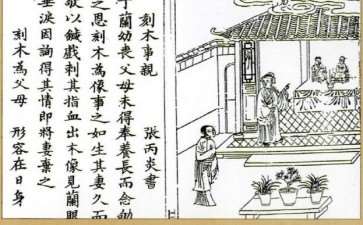 刻木事親 張丙炎書
丁蘭幼喪父母未得奉養長而念劬
之恩刻木為像事之如生其妻久而
敬以鍼戲刺其指血出木像見蘭眼
垂淚因詢得其情即將妻棄之
刻木為父母 形容在日身